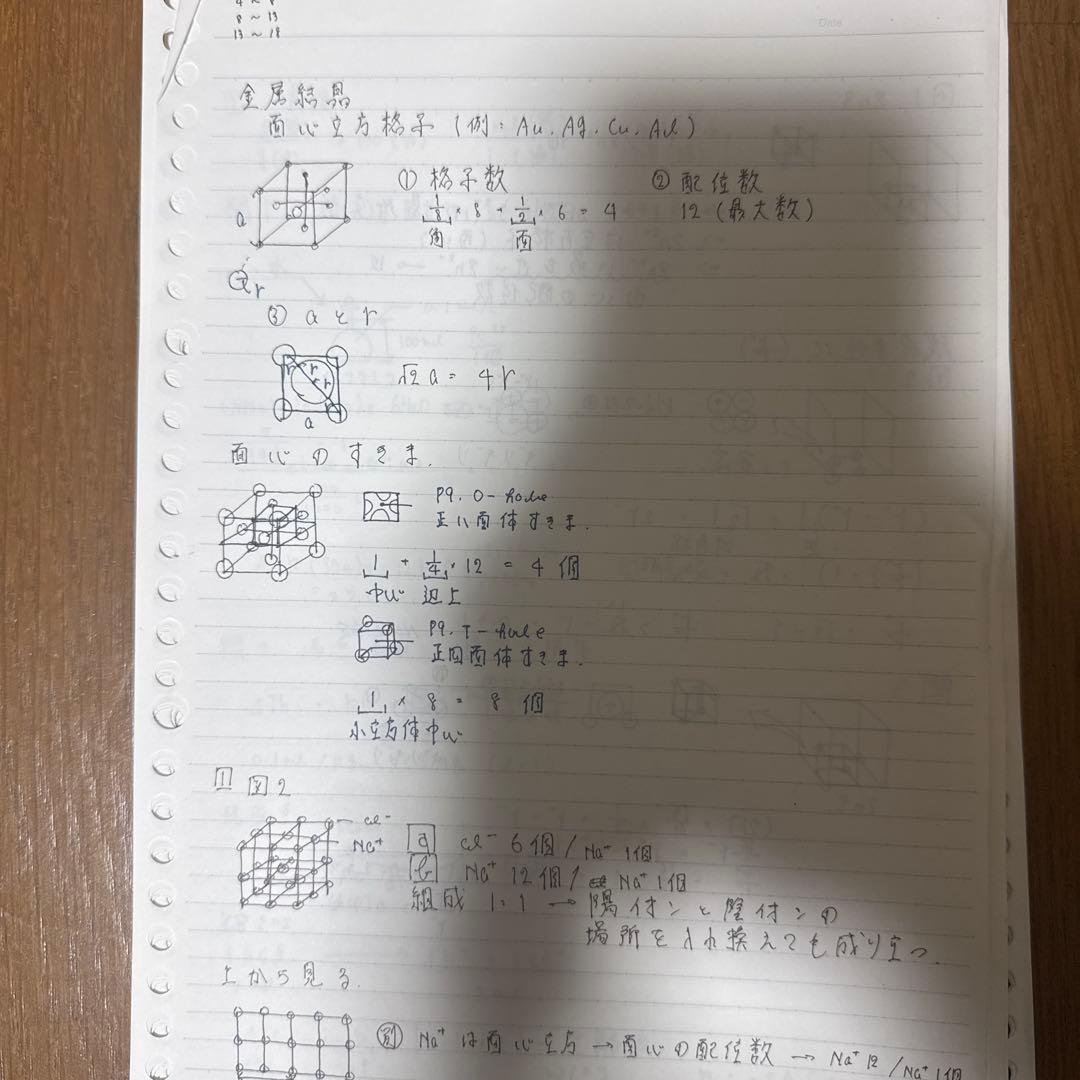 4 ~ 8
8 ~ 13
13 ~ 18
Date
金属結晶
面心立方格子 (例: Au. Ag. Cu. Al)
a
r
① 格子数
1/8 × 8 + 1/2 × 6 = 4
角 面
② 配位数
12 (最大数)
③ a と r
r r r r
a
√2 a = 4r
面心のすきま.
P9. O-hole
正八面体すきま.
1 + 1/4 × 12 = 4 個
中心 辺上
P9. T-hole
正四面体すきま.
1 × 8 = 8 個
小立方体中心
1 図2
Cl⁻
Na⁺
a Cl⁻ 6個 / Na⁺ 1個
b Na⁺ 12個 / Na⁺ 1個
組成 1:1 → 陽イオンと陰イオンの
場所を入れ換えても成り立つ.
上から見る.
別 Na⁺は面心立方 → 面心の配位数 → Na⁺ 12 / Na⁺ 1個